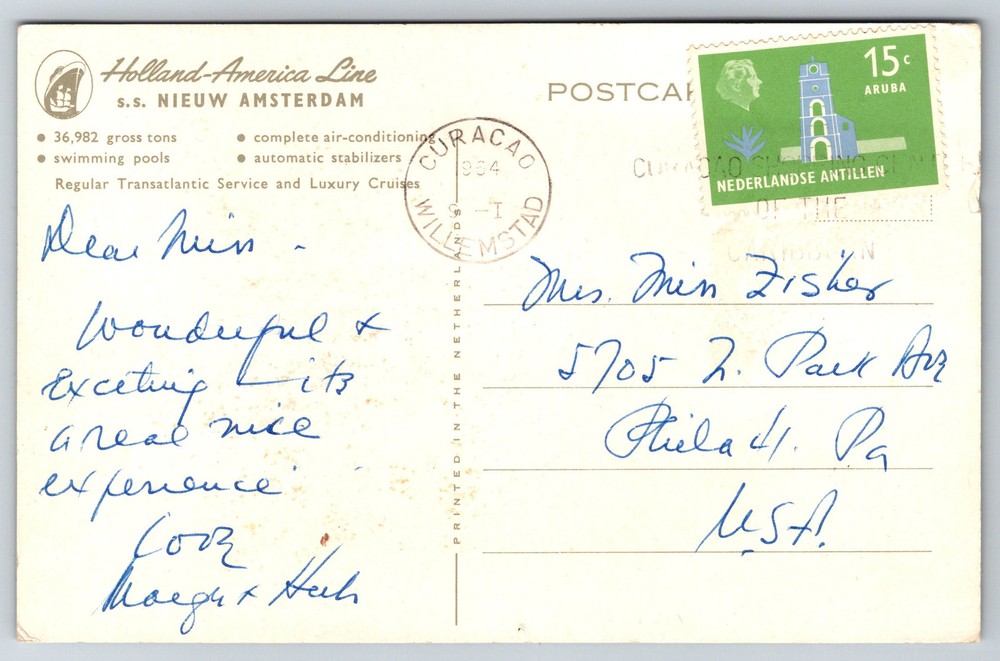 Holland-America Line
s.s. NIEUW AMSTERDAM
● 36,982 gross tons
● complete air-conditioning
● swimming pools
● automatic stabilizers
Regular Transatlantic Service and Luxury Cruises
POSTCAR
15c
ARUBA
NEDERLANDSE ANTILLEN
CURACAO
1964
9 -I
WILLEMSTAD
CURACAO SHOPPING
OF THE
CARIBBEAN
PRINTED IN THE NETHERLANDS
Dear Miss -
Wonderful &
Exceting - its
a real nice
experience
Love
& Herb
Mrs. Miss Fisher
5705 N. Park Ave
Phila 41. Pa
U.S.A.